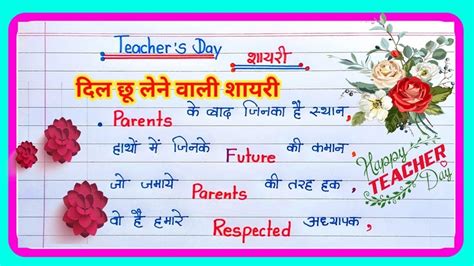 Teacher's Day शायरी
दिल छू लेने वाली शायरी
Parents के बाद जिनका है स्थान,
हाथों में जिनके Future की कमान,
जो जमाये Parents की तरह हक,
वो है हमारे Respected अध्यापक,
Happy
TEACHER
Day